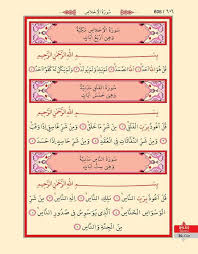 سُورَةُ الْإِخْلَاصِ
سُورَةُ الْإِخْلَاصِ مَكِّيَّةٌ
وَهِيَ أَرْبَعُ آيَاتٍ
بِسْمِ اللَّهِ الرَّحْمَٰنِ الرَّحِيمِ
قُلْ هُوَ اللَّهُ أَحَدٌ اللَّهُ الصَّمَدُ لَمْ يَلِدْ وَلَمْ يُولَدْ وَلَمْ يَكُنْ لَهُ كُفُوًا أَحَدٌ
سُورَةُ الْفَلَقِ
وَهِيَ خَمْسُ آيَاتٍ
بِسْمِ اللَّهِ الرَّحْمَٰنِ الرَّحِيمِ
قُلْ أَعُوذُ بِرَبِّ الْفَلَقِ مِنْ شَرِّ مَا خَلَقَ وَمِنْ شَرِّ غَاسِقٍ إِذَا وَقَبَ
وَمِنْ شَرِّ النَّفَّاثَاتِ فِي الْعُقَدِ وَمِنْ شَرِّ حَاسِدٍ إِذَا حَسَدَ
سُورَةُ النَّاسِ
بِسْمِ اللَّهِ الرَّحْمَٰنِ الرَّحِيمِ
قُلْ أَعُوذُ بِرَبِّ النَّاسِ مَلِكِ النَّاسِ إِلَٰهِ النَّاسِ مِنْ شَرِّ
الْوَسْوَاسِ الْخَنَّاسِ الَّذِي يُوَسْوِسُ فِي صُدُورِ النَّاسِ
مِنَ الْجِنَّةِ وَالنَّاسِ